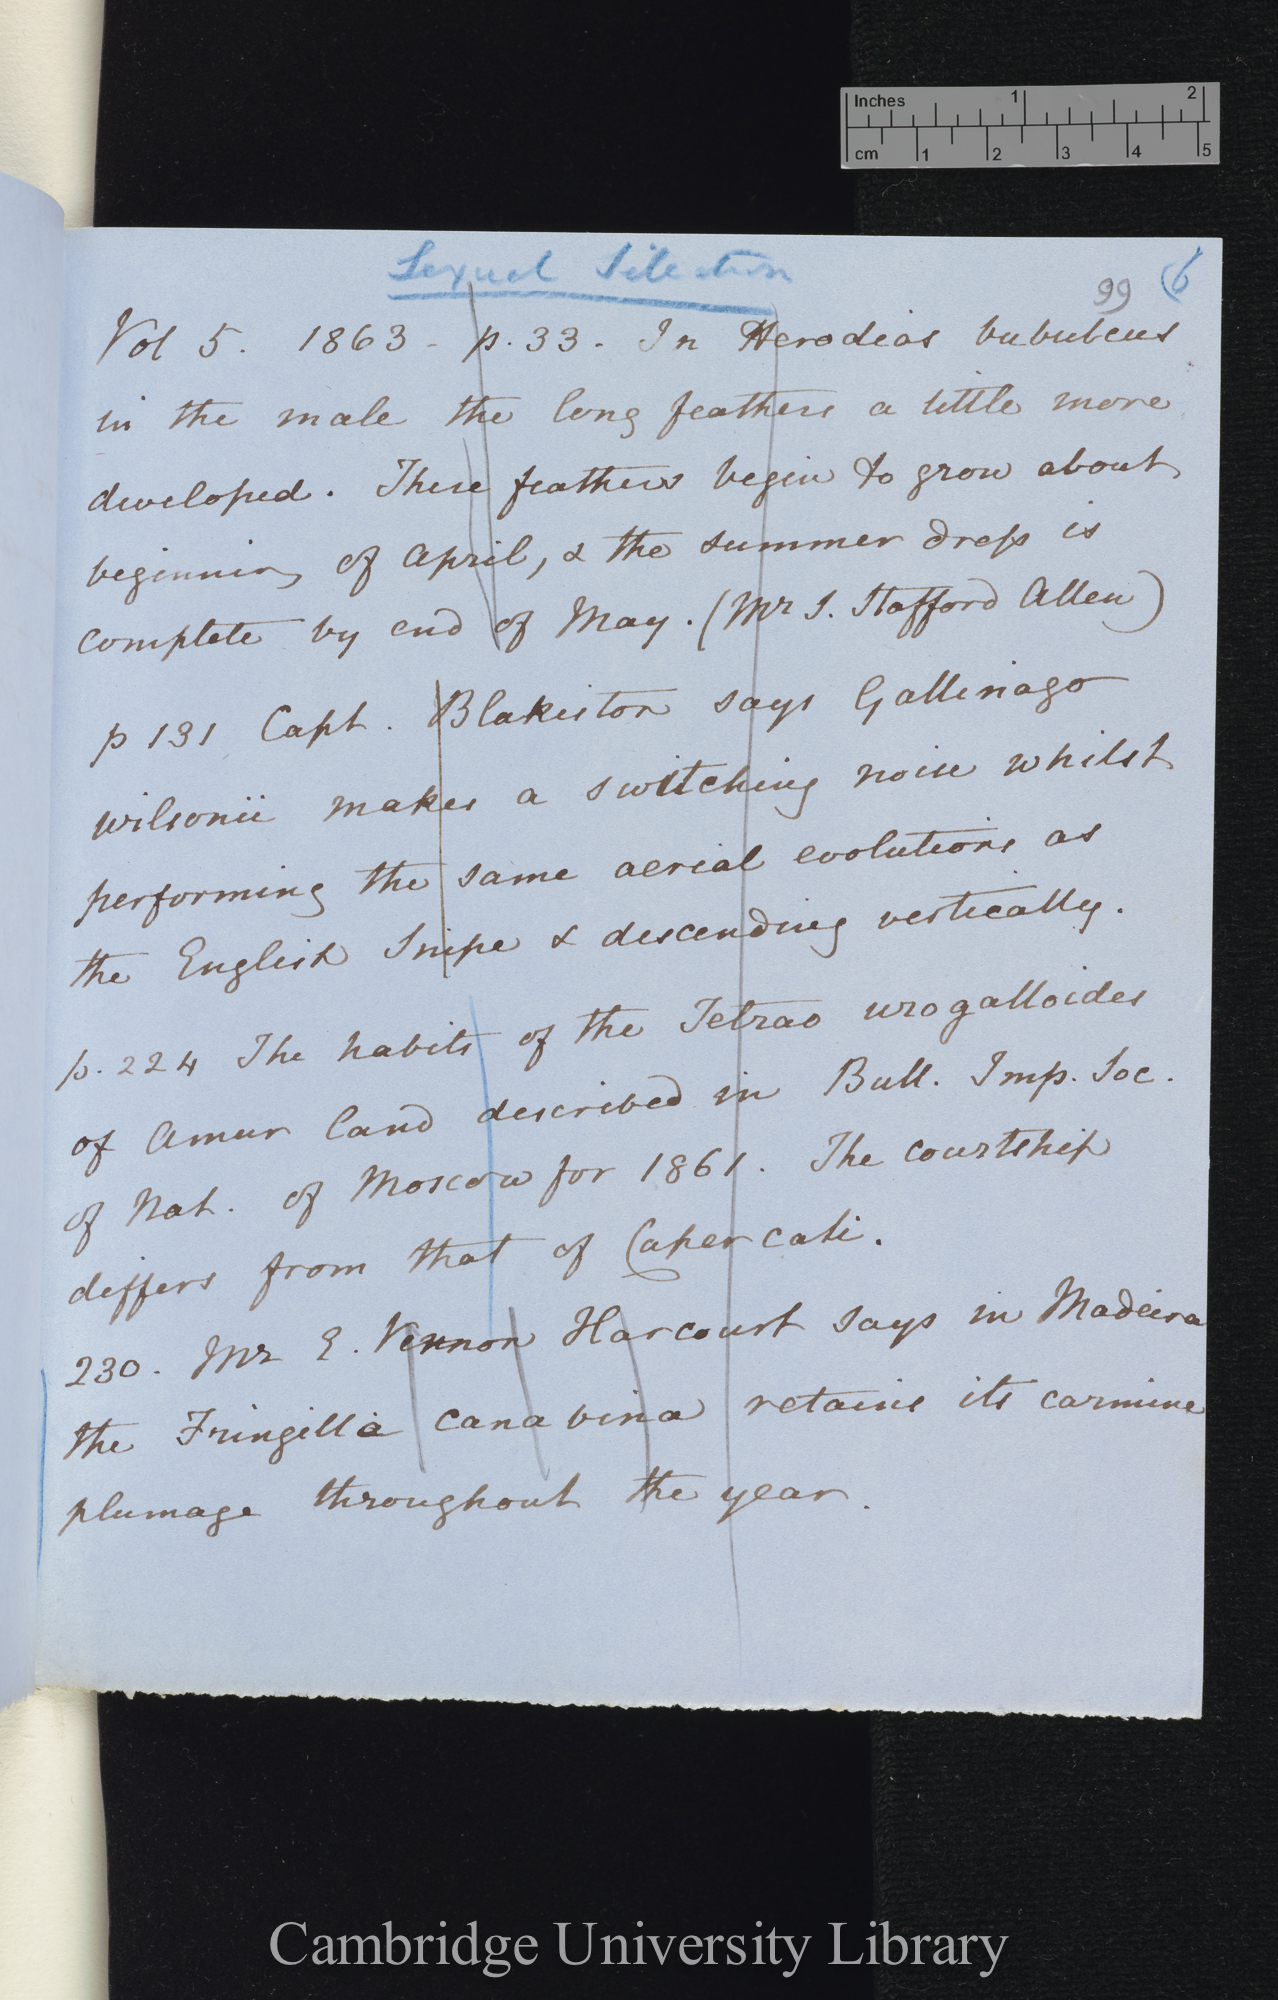 Inches 1 2
cm 1 2 3 4 5
Sexual Selection
99 (6
Vol 5. 1863 - p. 33. In Herodias bubulcus
in the male the long feathers a little more
developed. These feathers begin to grow about
beginning of April, & the summer dress is
complete by end of May. (Mr S. Stafford Allen)
p 131 Capt. Blakiston says Gallinago
wilsonii makes a switching noise whilst
performing the same aerial evolutions as
the English Snipe & descending vertically.
p. 224 The habits of the Tetrao urogalloides
of Amur land described in Bull. Imp. Soc.
of Nat. of Moscow for 1861. The courtship
differs from that of Capercali.
230. Mr E. Vernon Harcourt says in Madeira
the Fringilla canabina retains its carmine
plumage throughout the year.
Cambridge University Library